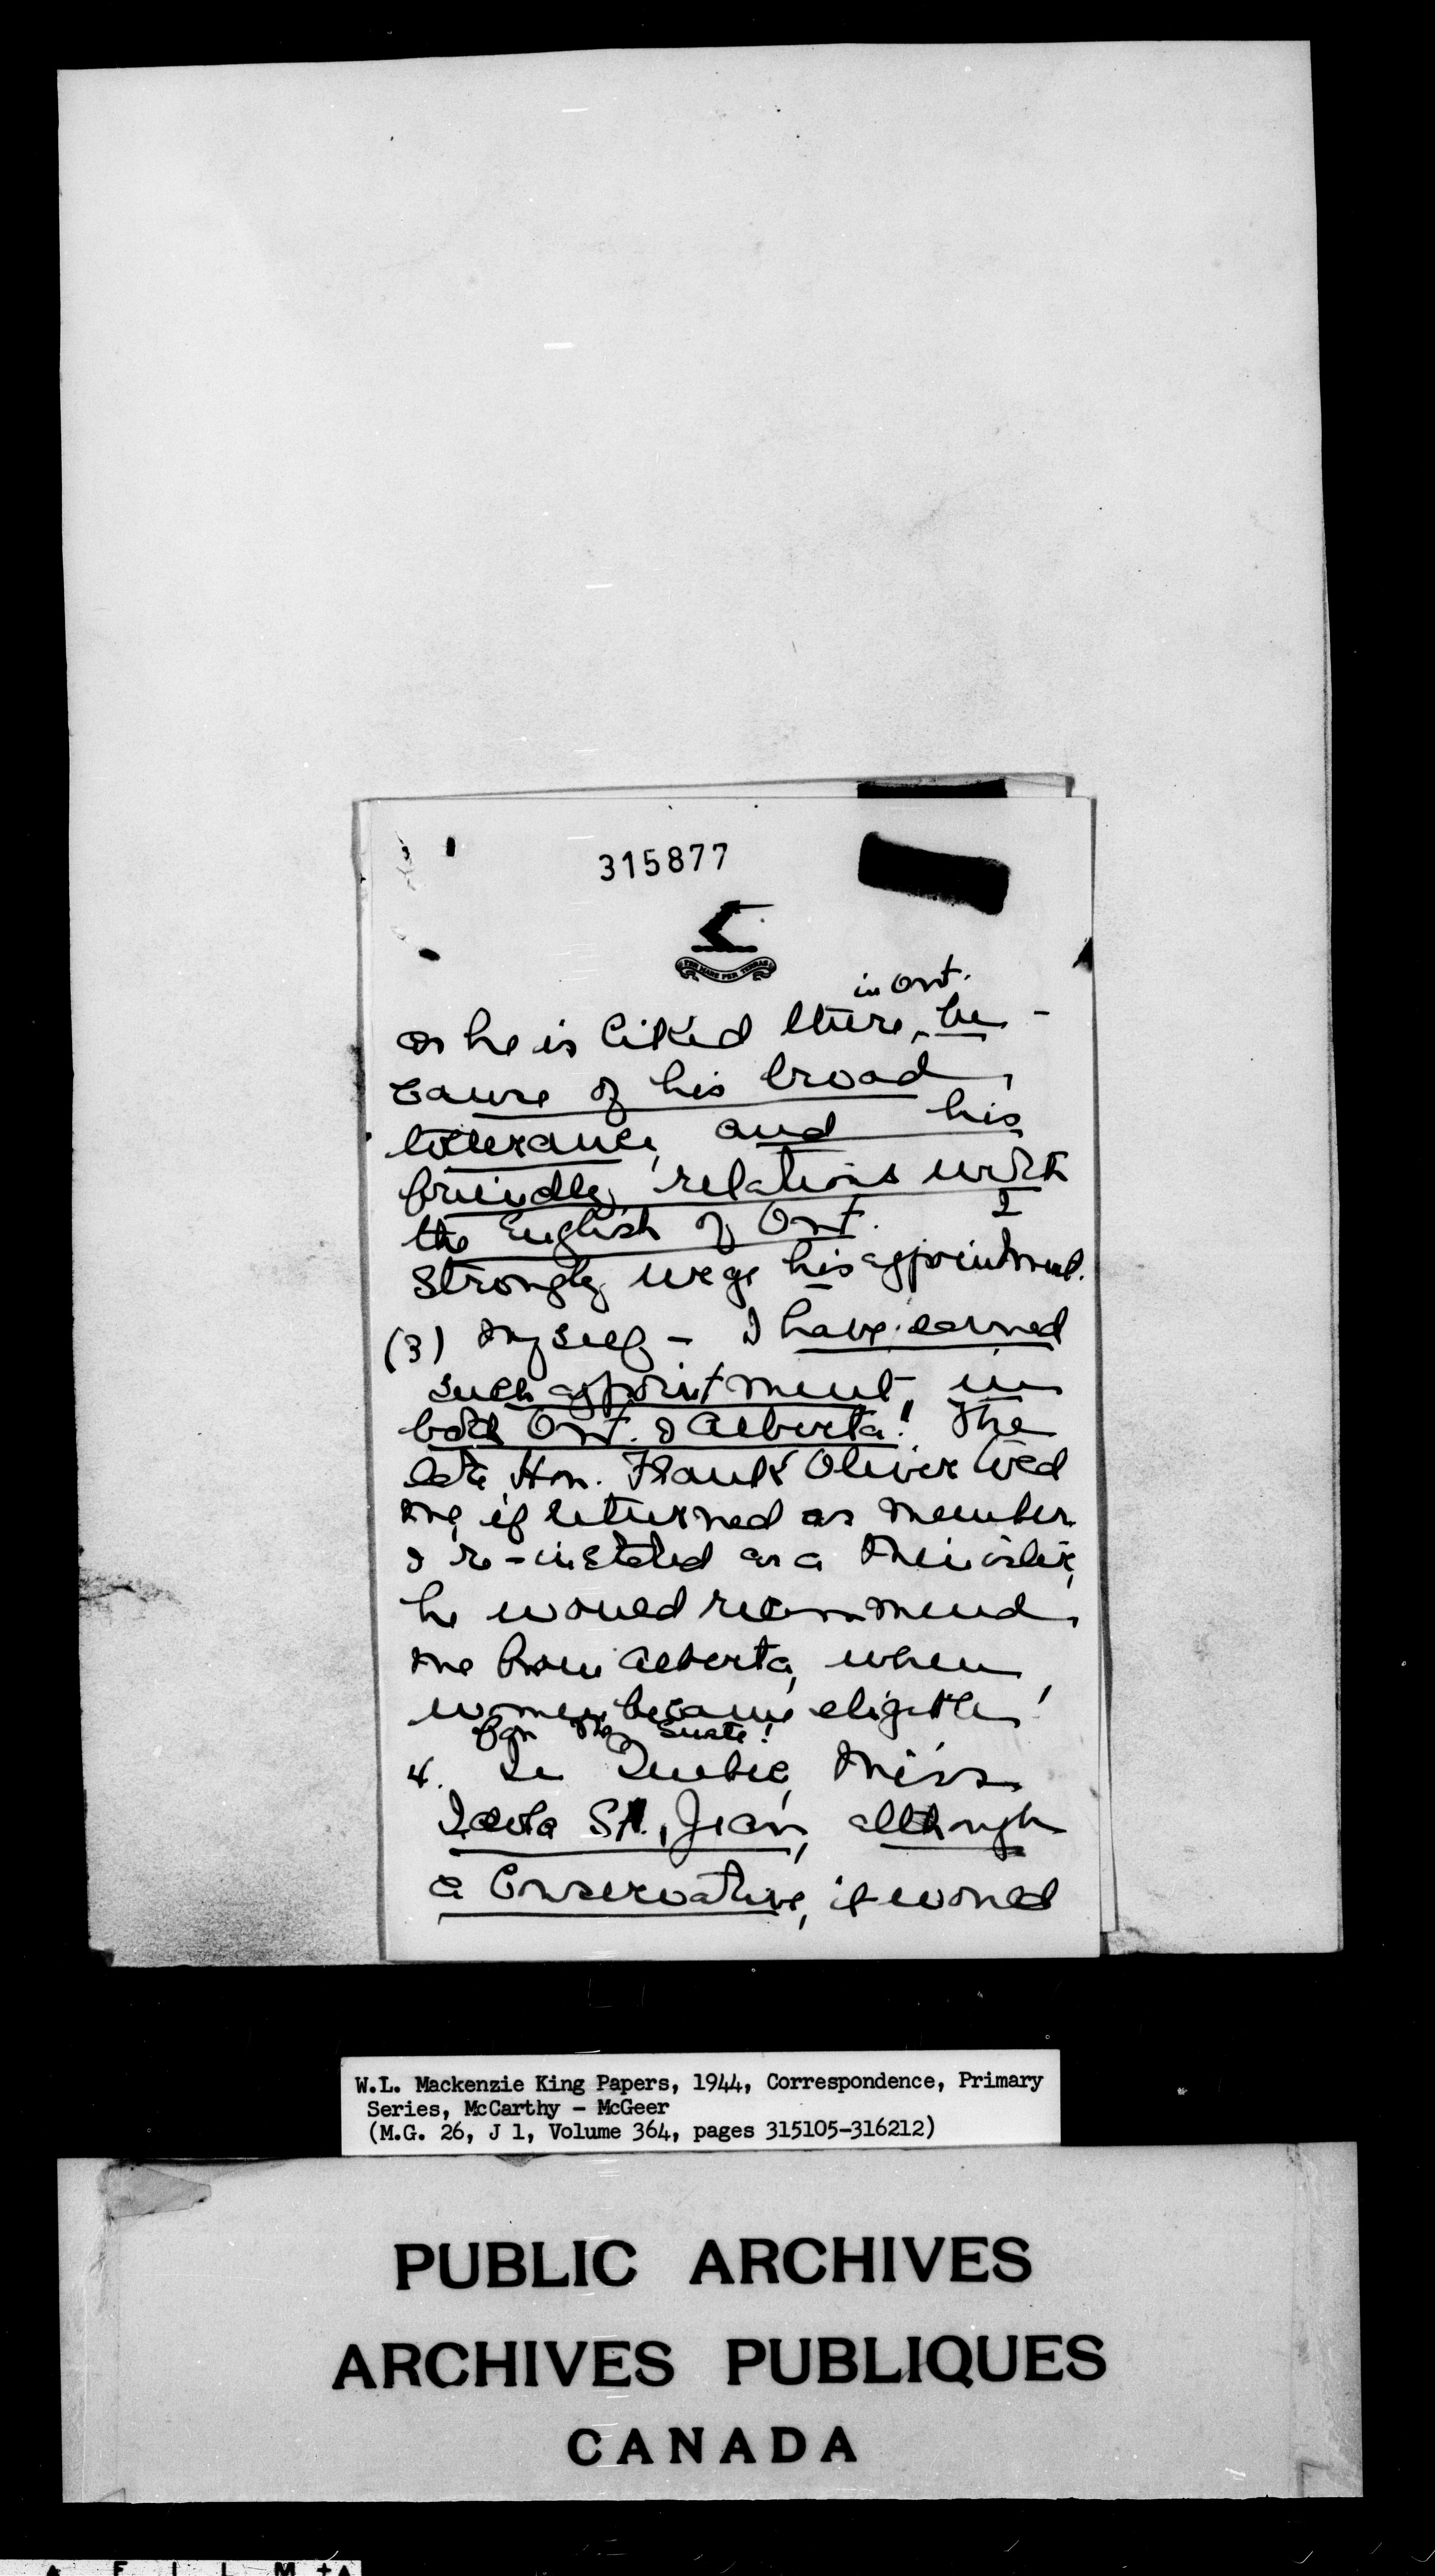 315877
PER MARE PER TERRAS
in Ont.
as he is liked there, be-
cause of his broad
tolerance, and his
friendly relations with
the English of Ont. I
strongly urge his appointment.
(3) Myself - I have earned
such appointment, in
both Ont. & Alberta! The
late Hon. Frank Oliver told
me, if returned as member
& re-instated as a Minister,
he would recommend
me from Alberta, when
women became eligible
for the Senate!
4. In Quebec, Miss
Idola St. Jean, although
a Conservative, it would
W.L. Mackenzie King Papers, 1944, Correspondence, Primary
Series, McCarthy - McGeer
(M.G. 26, J 1, Volume 364, pages 315105-316212)
PUBLIC ARCHIVES
ARCHIVES PUBLIQUES
CANADA